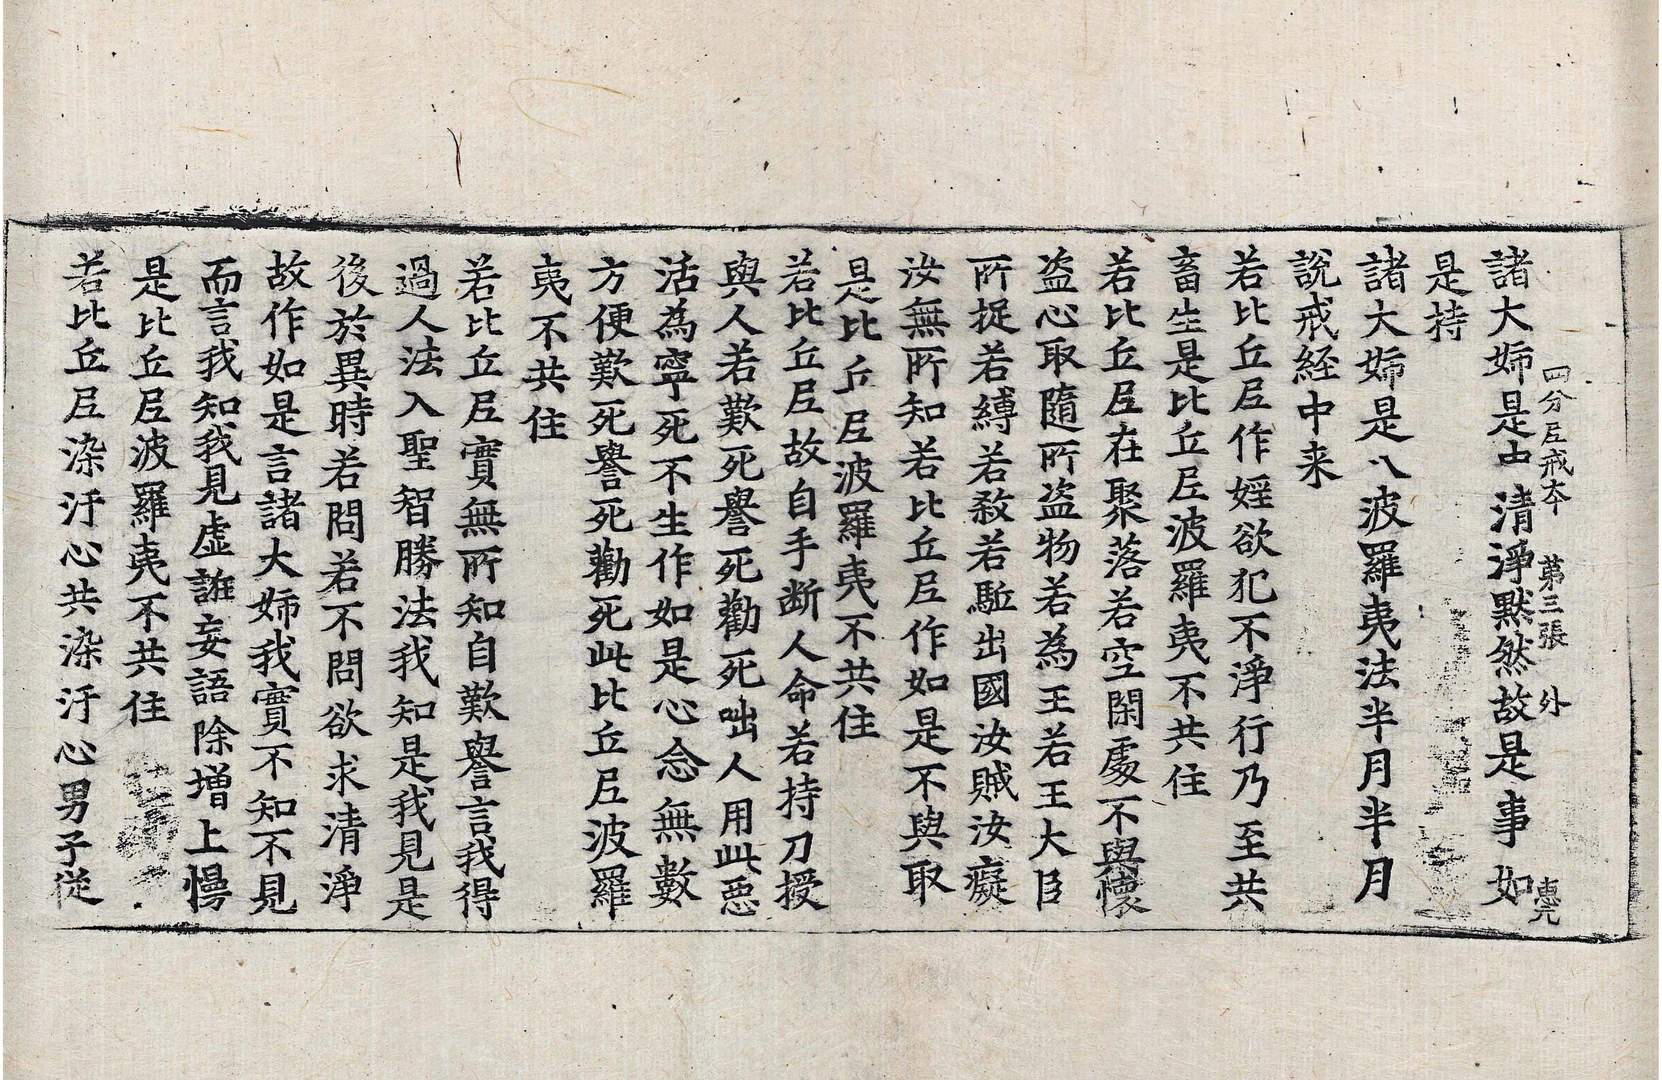 四分尼戒本 第三張 外 惠元
諸大姉是中清淨默然故是事如
是持
諸大姉是八波羅夷法半月半月
說戒経中来
若比丘尼作婬欲犯不淨行乃至共
畜生是比丘尼波羅夷不共住
若比丘尼在聚落若空閑處不與懷
盜心取隨所盜物若為王若王大臣
所捉若縛若殺若駈出國汝賊汝癡
汝無所知若比丘尼作如是不與取
是比丘尼波羅夷不共住
若比丘尼故自手断人命若持刀授
與人若歎死譽死勸死咄人用此惡
活為寧死不生作如是心念無數
方便歎死譽死勸死此比丘尼波羅
夷不共住
若比丘尼實無所知自歎譽言我得
過人法入聖智勝法我知是我見是
後於異時若問若不問欲求清淨
故作如是言諸大姉我實不知不見
而言我知我見虛誑妄語除增上慢
是比丘尼波羅夷不共住
若比丘尼染汙心共染汙心男子從